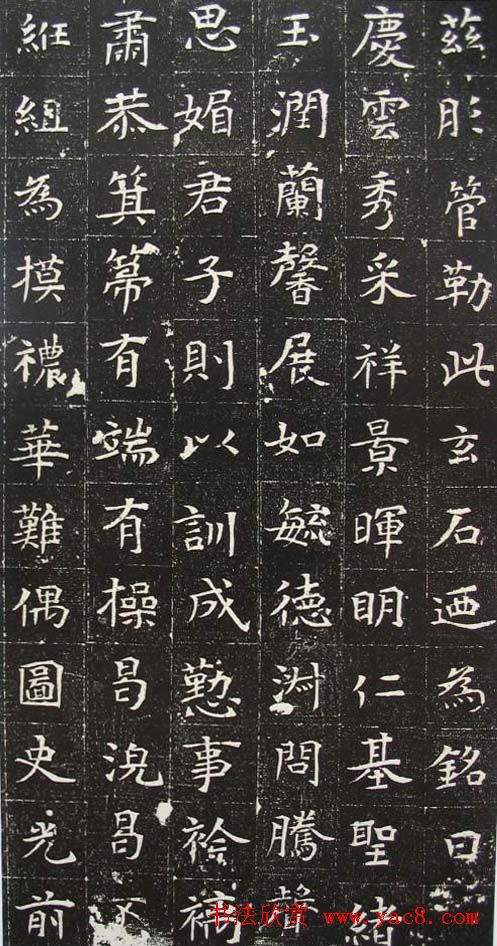 茲彤管勒此玄石迺為銘曰
慶雲秀采祥景暉明仁基聖緒
玉潤蘭馨展如毓德淑問騰聲
思媚君子則以訓成懃事袷
肅恭箕帚有端有操
絍組為摸襛華難偶圖史光前
书法欣赏 www.yac8.com